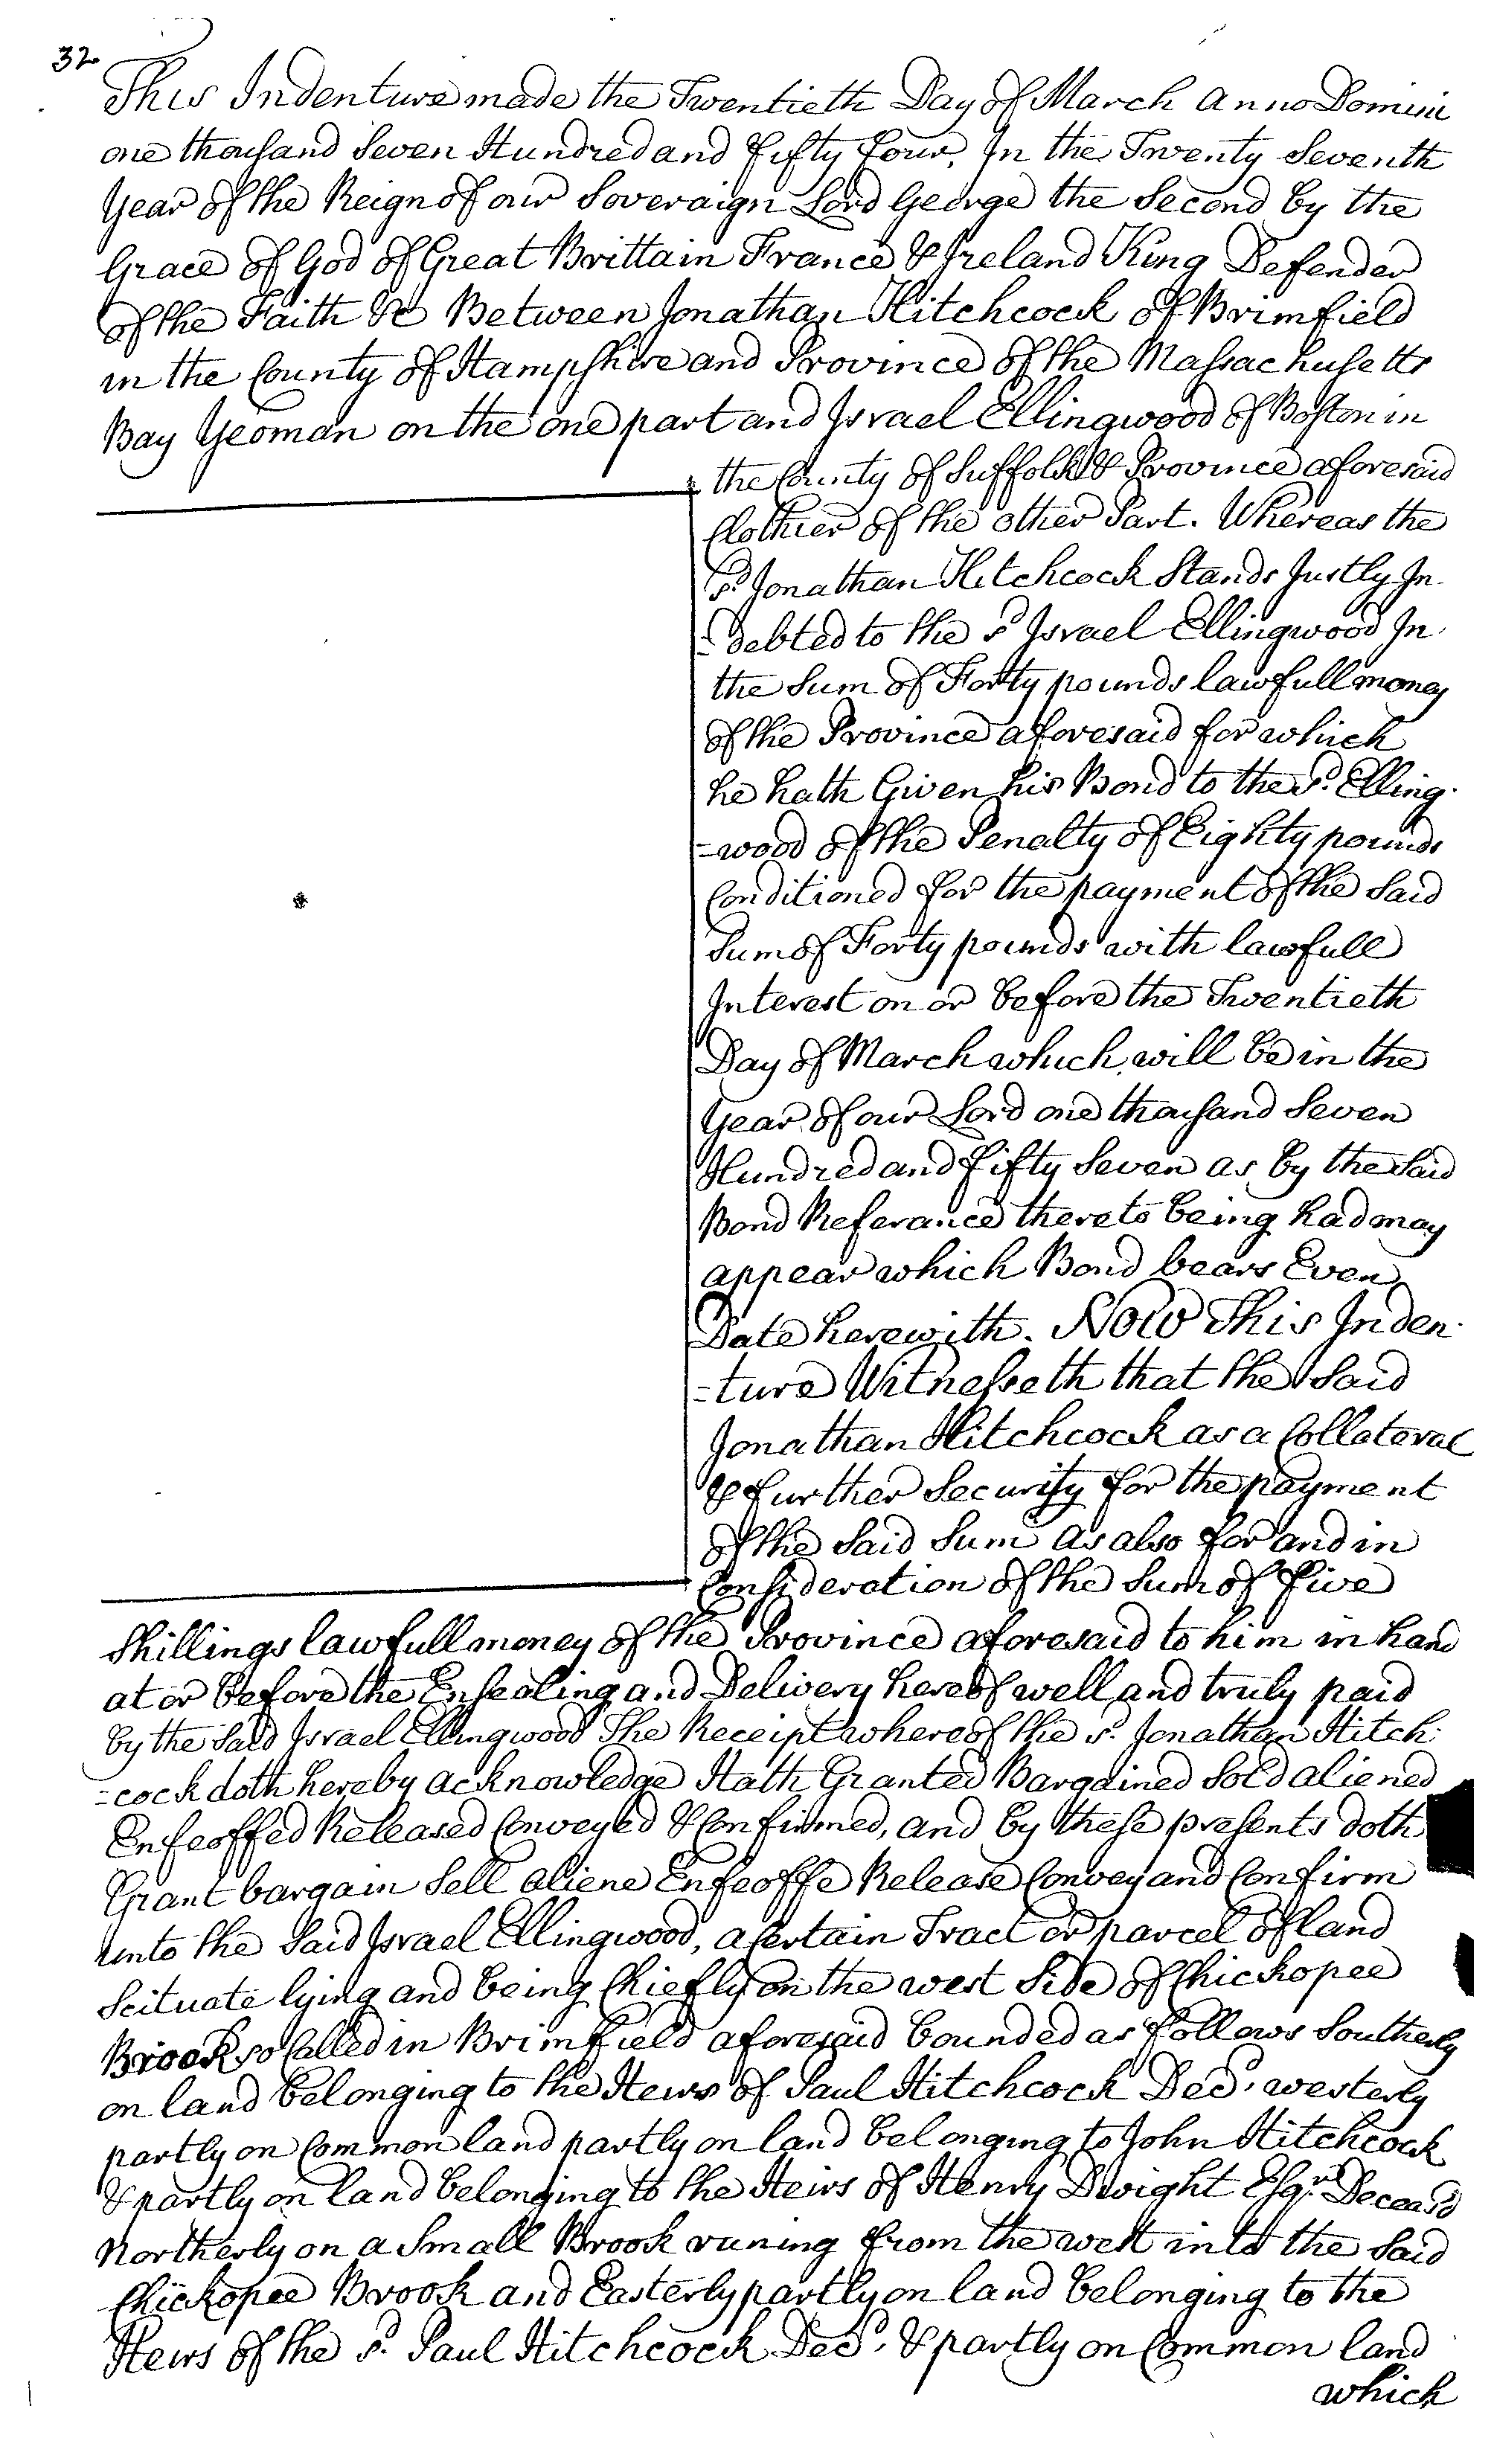 32
This Indenture made the Twentieth Day of March Anno Domini
one thousand Seven Hundred and fifty four, In the Twenty Seventh
Year of the Reign of our Soveraign Lord George the Second by the
Grace of God of Great Brittain France & Ireland King Defender
of the Faith &c Between Jonathan Hitchcock of Brimfield
in the County of Hampshire and Province of the Massachusetts
Bay Yeoman on the one part and Israel Ellingwood of Boston in
the County of Suffolk & Province aforesaid
Clothier of the other Part. Whereas the
sd. Jonathan Hitchcock Stands Justly In
=debted to the sd Israel Ellingwood In
the Sum of Forty pounds lawfull money
of the Province aforesaid for which
he hath Given his Bond to the sd. Elling
=wood of the Penalty of Eighty pounds
Conditioned for the payment of the Said
Sum of Forty pounds with lawfull
Interest on or before the Twentieth
Day of March which will be in the
Year of our Lord one thousand Seven
Hundred and fifty Seven as by the Said
Bond Referance thereto being had may
appear which Bond bears Even
Date herewith. Now This Inden
=ture Witnesseth that the Said
Jonathan Hitchcock as a Collateral
& further Security for the payment
of the Said Sum as also for and in
Consideration of the Sum of five
Shillings lawfull money of the Province aforesaid to him in hand
at or before the Ensealing and Delivery hereof well and truly paid
by the Said Israel Ellingwood The Receipt whereof the sd. Jonathan Hitch
=cock doth hereby acknowledge Hath Granted Bargained Sold aliened
Enfeoffed Released Conveyed & Confirmed, and by these presents doth
Grant bargain Sell aliene Enfeoffe Release Convey and Confirm
unto the Said Israel Ellingwood, a Certain Tract or parcel of land
Scituate lying and being Chiefly on the west Side of Chickopee
Brook so Called in Brimfield aforesaid bounded as follows Southerly
on land belonging to the Heirs of Paul Hitchcock Decd. westerly
partly on Common land partly on land belonging to John Hitchcock
& partly on land belonging to the Heirs of Henry Dwight Esqr. Deceasd
Northerly on a Small Brook runing from the west into the Said
Chickopee Brook and Easterly partly on land belonging to the
Heirs of the sd. Paul Hitchcock Decd. & partly on Common land
which